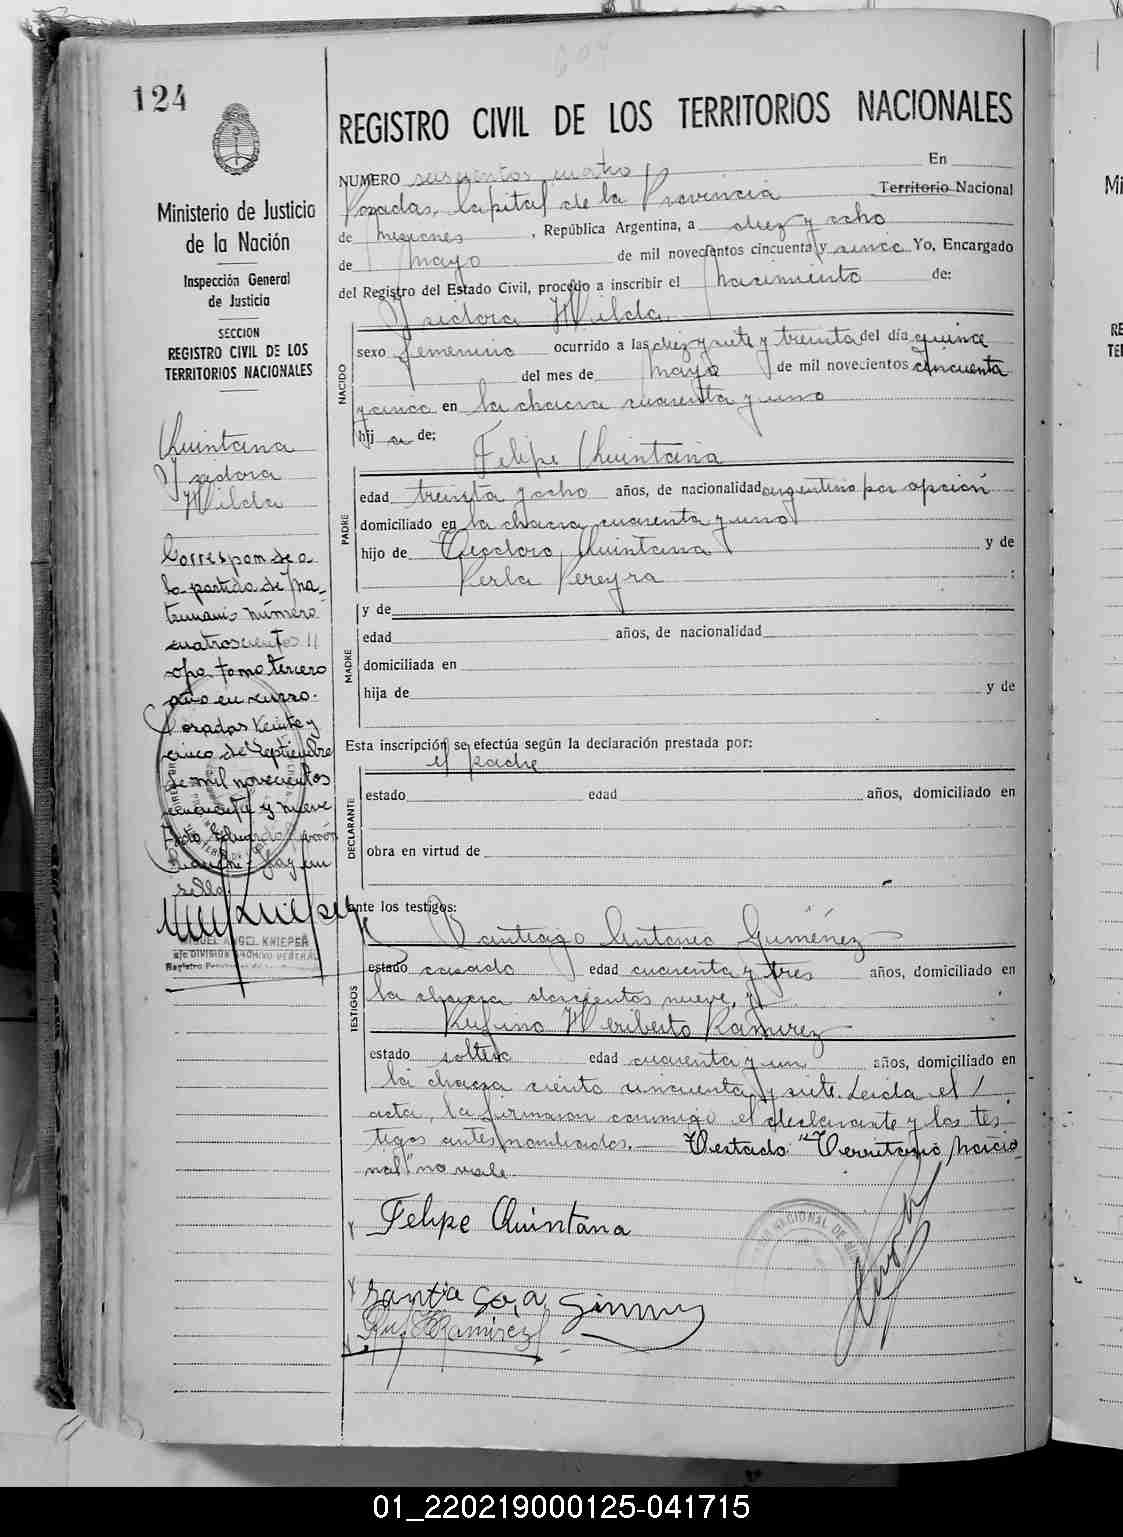 124
REGISTRO CIVIL DE LOS TERRITORIOS NACIONALES
Ministerio de Justicia
de la Nación
Inspección General
de Justicia
SECCION
REGISTRO CIVIL DE LOS
TERRITORIOS NACIONALES
Quintana
Ysidora
Hilda
Corresponde a
la partida de ma-
trimonio número
cuatrocientos
tomo tercero
año en curso.
Posadas Veinte y
cinco de Septiembre
de mil novecientos
cincuenta y nueve
Eduardo
hay un
sello
MIGUEL ANGEL KNIEPER
DIVISION ARCHIVO GENERAL
NUMERO seiscientos cuatro En
Posadas, Capital de la Provincia Territorio Nacional
de Misiones, República Argentina, a diez y ocho
de mayo de mil novecientos cincuenta y cinco Yo, Encargado
del Registro del Estado Civil, procedo a inscribir el Nacimiento de:
Ysidora Hilda
NACIDO
sexo femenino ocurrido a las diez y siete y treinta del día quince
del mes de mayo de mil novecientos cincuenta
y cinco en la chacra cuarenta y uno
hij a de:
Felipe Quintana
PADRE
edad treinta y ocho años, de nacionalidad argentino por opción
domiciliado en la chacra cuarenta y uno
hijo de Teodoro Quintana y de
Perla Pereyra :
MADRE
y de
edad años, de nacionalidad
domiciliada en
hija de y de
Esta inscripción se efectúa según la declaración prestada por:
el padre
DECLARANTE
estado edad años, domiciliado en
obra en virtud de
ante los testigos:
Santiago Antonio Gimenez
TESTIGOS
estado casado edad cuarenta y tres años, domiciliado en
la chacra doscientos nueve, y
Rufino Heriberto Ramirez
estado soltero edad cuarenta y un años, domiciliado en
la chacra ciento cincuenta y siete. Leida el
acta, la firmaron conmigo el declarante y los tes
tigos antes nombrados. Testado: "Territorio Nacio
nal" no vale
Felipe Quintana
Ruf H Ramirez
01_220219000125-041715